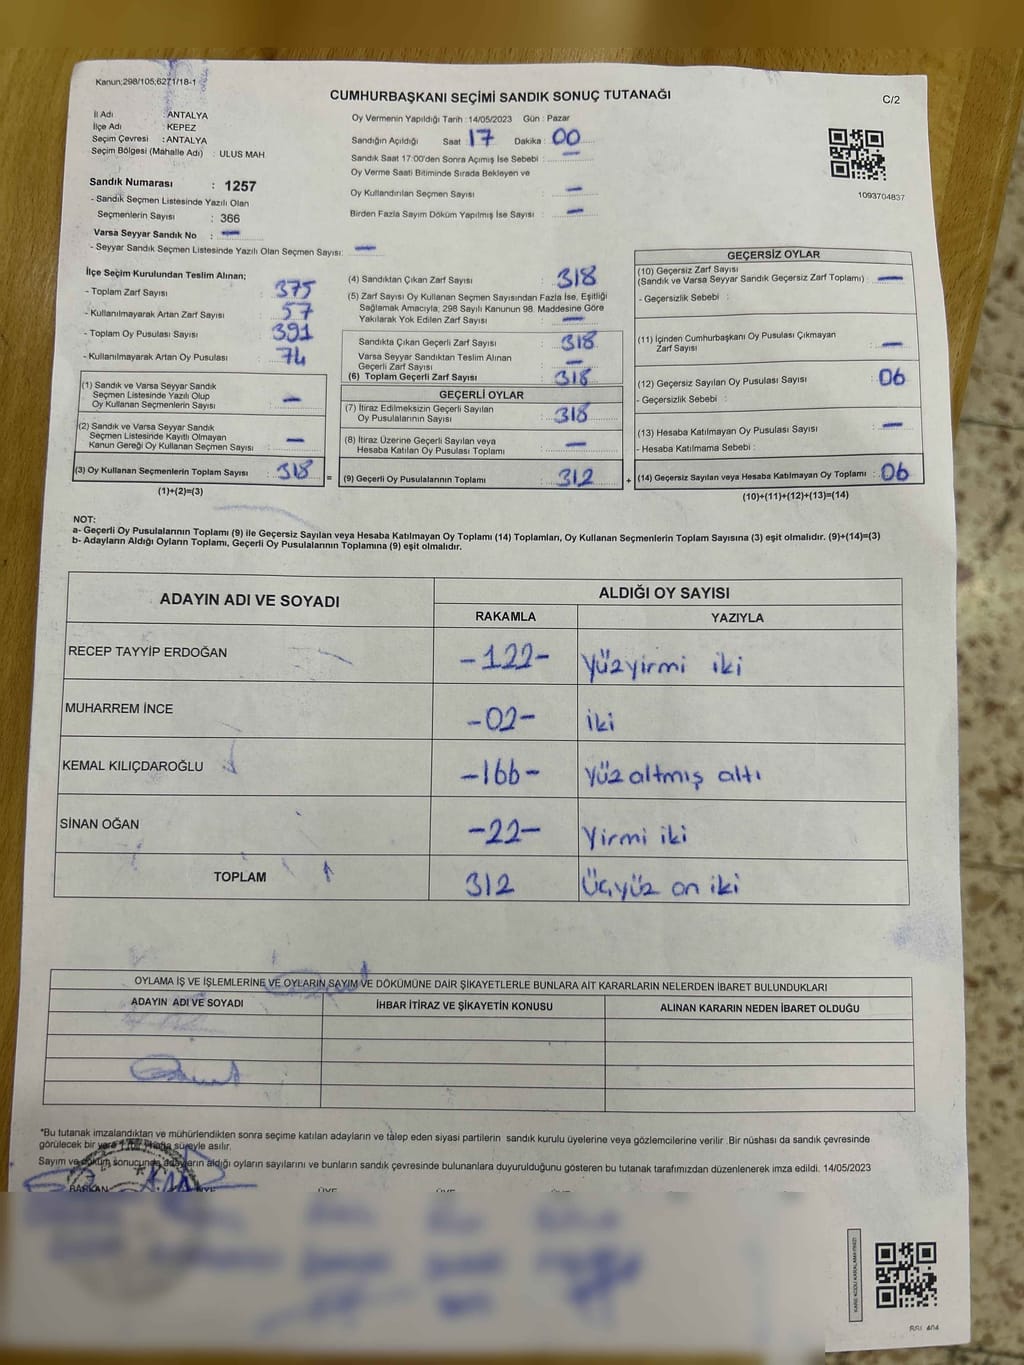 Kanun:298/105;6271/18-1
CUMHURBAŞKANI SEÇİMİ SANDIK SONUÇ TUTANAĞI
C/2
İl Adı : ANTALYA
İlçe Adı : KEPEZ
Seçim Çevresi : ANTALYA
Seçim Bölgesi (Mahalle Adı) : ULUS MAH
Sandık Numarası : 1257
- Sandık Seçmen Listesinde Yazılı Olan
Seçmenlerin Sayısı : 366
Varsa Seyyar Sandık No : —
- Seyyar Sandık Seçmen Listesinde Yazılı Olan Seçmen Sayısı: —
Oy Vermenin Yapıldığı Tarih : 14/05/2023 Gün : Pazar
Sandığın Açıldığı Saat : 17 Dakika : 00
Sandık Saat 17:00'den Sonra Açımış İse Sebebi : —
Oy Verme Saati Bitiminde Sırada Bekleyen ve
Oy Kullandırılan Seçmen Sayısı : —
Birden Fazla Sayım Döküm Yapılmış İse Sayısı : —
1093704837
İlçe Seçim Kurulundan Teslim Alınan;
- Toplam Zarf Sayısı : 375
- Kullanılmayarak Artan Zarf Sayısı : 57
- Toplam Oy Pusulası Sayısı : 391
- Kullanılmayarak Artan Oy Pusulası : 74
(1) Sandık ve Varsa Seyyar Sandık
Seçmen Listesinde Yazılı Olup
Oy Kullanan Seçmenlerin Sayısı : —
(2) Sandık ve Varsa Seyyar Sandık
Seçmen Listesinde Kayıtlı Olmayan
Kanun Gereği Oy Kullanan Seçmen Sayısı : —
(3) Oy Kullanan Seçmenlerin Toplam Sayısı : 318
(1)+(2)=(3)
(4) Sandıktan Çıkan Zarf Sayısı : 318
(5) Zarf Sayısı Oy Kullanan Seçmen Sayısından Fazla İse, Eşitliği
Sağlamak Amacıyla, 298 Sayılı Kanunun 98. Maddesine Göre
Yakılarak Yok Edilen Zarf Sayısı : —
Sandıkta Çıkan Geçerli Zarf Sayısı : 318
Varsa Seyyar Sandıktan Teslim Alınan
Geçerli Zarf Sayısı : —
(6) Toplam Geçerli Zarf Sayısı : 318
GEÇERLİ OYLAR
(7) İtiraz Edilmeksizin Geçerli Sayılan
Oy Pusulalarının Sayısı : 318
(8) İtiraz Üzerine Geçerli Sayılan veya
Hesaba Katılan Oy Pusulası Toplamı : —
= (9) Geçerli Oy Pusulalarının Toplamı : 312
GEÇERSİZ OYLAR
(10) Geçersiz Zarf Sayısı
(Sandık ve Varsa Seyyar Sandık Geçersiz Zarf Toplamı) : —
- Geçersizlik Sebebi :
(11) İçinden Cumhurbaşkanı Oy Pusulası Çıkmayan
Zarf Sayısı : —
(12) Geçersiz Sayılan Oy Pusulası Sayısı : 06
- Geçersizlik Sebebi :
(13) Hesaba Katılmayan Oy Pusulası Sayısı : —
- Hesaba Katılmama Sebebi :
+ (14) Geçersiz Sayılan veya Hesaba Katılmayan Oy Toplamı : 06
(10)+(11)+(12)+(13)=(14)
NOT:
a- Geçerli Oy Pusulalarının Toplamı (9) ile Geçersiz Sayılan veya Hesaba Katılmayan Oy Toplamı (14) Toplamları, Oy Kullanan Seçmenlerin Toplam Sayısına (3) eşit olmalıdır. (9)+(14)=(3)
b- Adayların Aldığı Oyların Toplamı, Geçerli Oy Pusulalarının Toplamına (9) eşit olmalıdır.
ADAYIN ADI VE SOYADI
ALDIĞI OY SAYISI
RAKAMLA YAZIYLA
RECEP TAYYİP ERDOĞAN -122- Yüzyirmi iki
MUHARREM İNCE -02- iki
KEMAL KILIÇDAROĞLU -166- Yüz altmış altı
SİNAN OĞAN -22- Yirmi iki
TOPLAM 312 Üçyüz on iki
OYLAMA İŞ VE İŞLEMLERİNE VE OYLARIN SAYIM VE DÖKÜMÜNE DAİR ŞİKAYETLERLE BUNLARA AİT KARARLARIN NELERDEN İBARET BULUNDUKLARI
ADAYIN ADI VE SOYADI İHBAR İTİRAZ VE ŞİKAYETİN KONUSU ALINAN KARARIN NEDEN İBARET OLDUĞU
*Bu tutanak imzalandıktan ve mühürlendikten sonra seçime katılan adayların ve talep eden siyasi partilerin sandık kurulu üyelerine veya gözlemcilerine verilir .Bir nüshası da sandık çevresinde
görülecek bir yere 1 hafta süreyle asılır.
Sayım ve döküm sonucunda adayların aldığı oyların sayılarını ve bunların sandık çevresinde bulunanlara duyurulduğunu gösteren bu tutanak tarafımızdan düzenlenerek imza edildi. 14/05/2023
BAŞKAN ÜYE ÜYE ÜYE